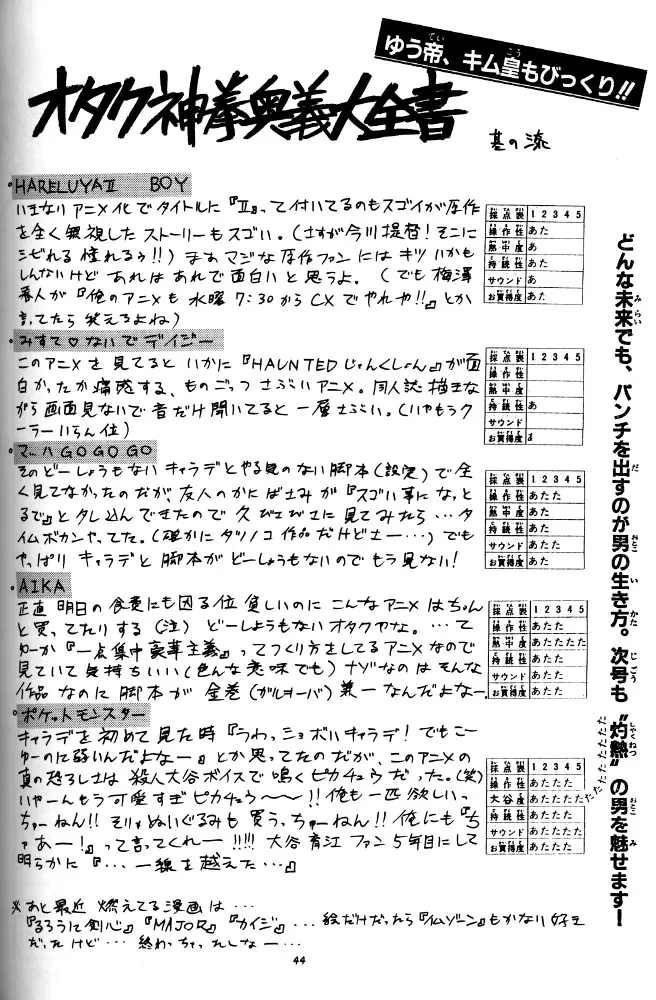 ゆう帝、キム皇もびっくり!!
オタク神拳奥義大全書
基の流
・HARELUYAⅡ BOY
いまないアニメ化でタイトルに『Ⅱ』って付いてるのもスゴイが原作
を全く無視したストーリーもスゴい。(さすが今川提督!そこに
シビれる憧れるゥ!!)まあマジな原作ファンにはキツいかも
しんないけどあれはあれで面白いと思うよ。(でも梅澤
春人が『俺のアニメも水曜7:30からCXでやれや!!』とか
言ってたら笑えるよね)
採点表 1 2 3 4 5
操作性 あた
熱中度 あ
持続性 あた
サウンド あ
お買得度 あた
・みすて♡ないでデイジー
このアニメを見てるといかに『HAUNTEDじゃんくしょん』が面
白かったか痛感する、ものごっつさぶいアニメ。同人誌描きな
がら画面見ないで音だけ聞いてると一層さぶい。(いやもうク
ーラーいらん位)
採点表 1 2 3 4 5
操作性
熱中度
持続性 あ
サウンド
お買得度
・マッハGOGOGO
そのどーしょうもないキャラデとやる気のない脚本(設定)で全
く見てなかったのだが、友人のかにばさみが『スゴい事になっと
るで』とタレ込んできたので久びさびさに見てみたら…タ
イムボカンやってた。(確かにタツノコ作品だけどさー…)でも
やっぱりキャラデと脚本がどーしょうもないのでもう見ない!
採点表 1 2 3 4 5
操作性 あたた
熱中度 あた
持続性 あた
サウンド あたた
お買得度 あた
・AIKA
正直明日の食費にも困る位貧しいのにこんなアニメはちゃん
と買ってたりする(注)どーしょうもないオタクやな。…て
ゆーか『一点集中豪華主義』ってつくり方をしてるアニメなので
見ていて気持ちいい(色んな意味でも)ナゾなのはそんな
作品なのに脚本が金巻(ガルキーバ)兼一なんだよなー
採点表 1 2 3 4 5
操作性 あたた
熱中度 あたたたた
持続性 あた
サウンド あた
お買得度 あたた
・ポケットモンスター
キャラデを初めて見た時『うわっショボいキャラデ!でもこー
ゆーのに弱いんだよなー』とか思ってたのだが、このアニメの
真の恐ろしさは殺人大谷ボイスで鳴くピカチュウだった。(笑)
いやーんもう可愛すぎピカチュウ〜〜!!俺も一匹欲しいっ
ちゅーねん!!そりゃぬいぐるみも買うっちゅーねん!!俺にも『ち
ゃあー!』って言ってくれー!!!!!大谷育江ファン5年目にして
明らかに『…一線を越えた…』
採点表 1 2 3 4 5
操作性 あたたた
大谷度 あたたたたたたたたたたたた
持続性 あたたた
サウンド あたたたた
お買得度 あたたた
※あと最近燃えてる漫画は…
『るろうに剣心』『MAJOR』『カイジ』…絵だけだったら『仏ゾーン』もかない好き
だったけど…終わっちゃったしなー…
どんな未来でも、パンチを出すのが男の生き方。次号も〝灼熱〟の男を魅せます!
44